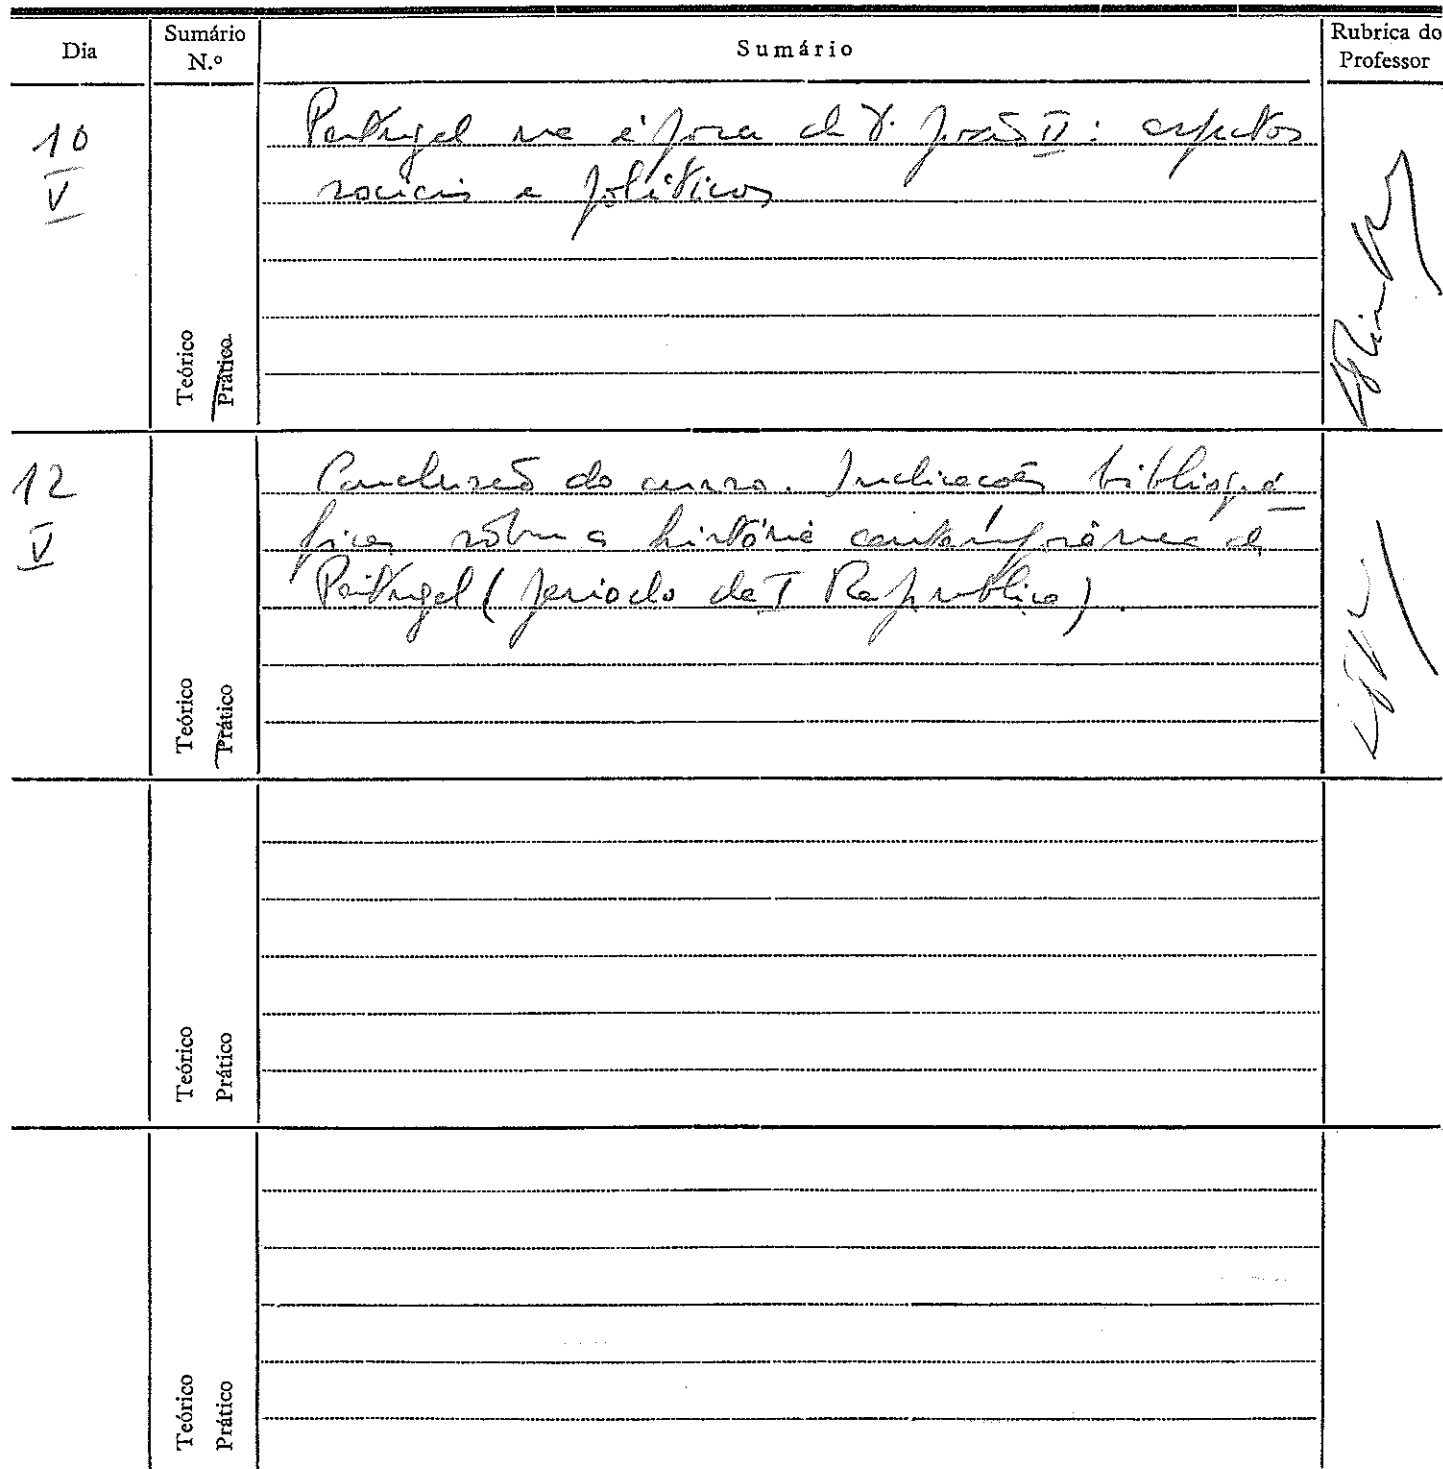 Dia
Sumário N.º
Sumário
Rubrica do Professor
10
V
Teórico
Prático
Portugal na época de D. João II: aspectos
sociais e políticos
12
V
Teórico
Prático
Conclusão do curso. Indicações bibliográ
ficas sôbre a história contemporânea de
Portugal (periodo da I Republica).
Teórico
Prático
Teórico
Prático